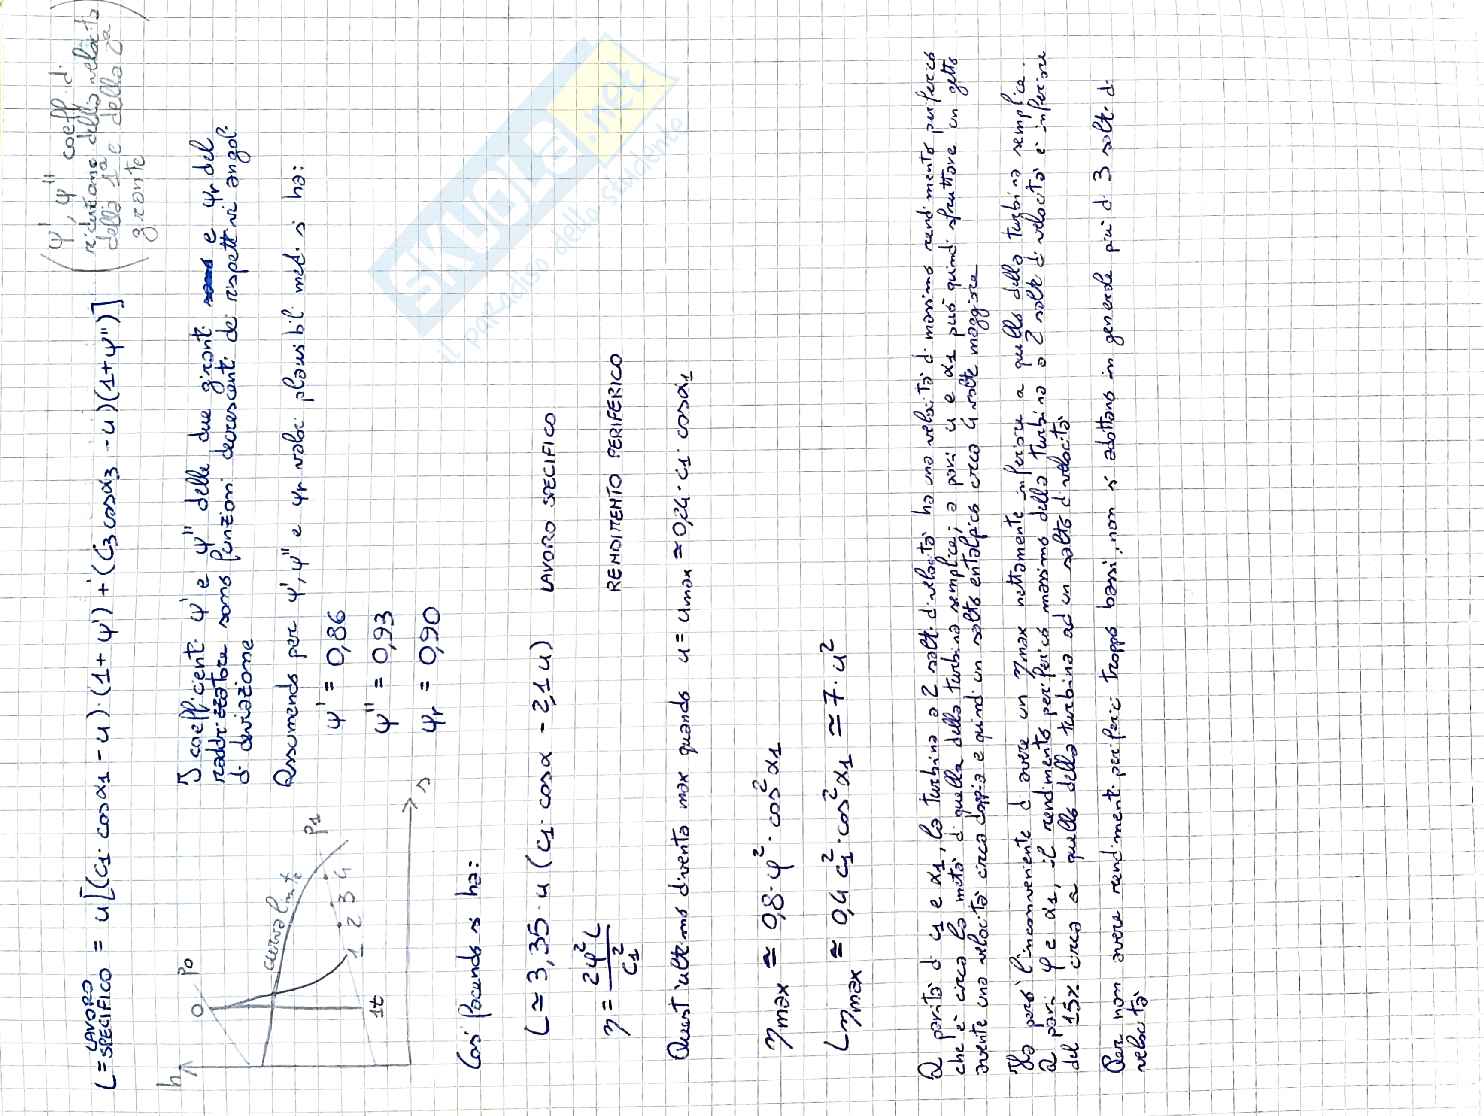 L = LAVORO SPECIFICO = u[(c1·cosα1 - u)·(1+ψ') + (c3 cosα3 - u)(1+ψ'')]
(ψ', ψ'' coeff. di
riduzione della velocità
della 1ª e della 2ª
girante)
I coefficienti ψ' e ψ'' delle due giranti e ψr del
raddrizzatore sono funzioni decrescenti dei rispettivi angoli
di deviazione
Assumendo per ψ', ψ'' e ψr valori plausibili medi si ha:
ψ' = 0,86
ψ'' = 0,93
ψr = 0,90
h
0
p0
curva limite
p1
1 2 3 4
1t
s
Così facendo si ha:
L ≃ 3,35·u(c1·cosα - 2,1u) LAVORO SPECIFICO
η = 2φ²L / c1² RENDIMENTO PERIFERICO
Quest'ultimo diventa max quando u = umax ≃ 0,24·c1·cosα1
ηmax ≃ 0,8·φ²·cos²α1
Lηmax ≃ 0,4 c1²·cos²α1 ≃ 7·u²
A parità di c1 e α1, la turbina a 2 salti di velocità ha una velocità di massimo rendimento periferico
che è circa la metà di quella della turbina semplice; a pari u e α1 può quindi sfruttare un getto
avente una velocità circa doppia e quindi un salto entalpico circa 4 volte maggiore
Ha però l'inconveniente di avere un ηmax nettamente inferiore a quello della turbina semplice.
A pari φ e α1, il rendimento periferico massimo della turbina a 2 salti di velocità è inferiore
del 15% circa a quello della turbina ad un salto di velocità
Per non avere rendimenti periferici troppo bassi, non si adottano in generale più di 3 salti di
velocità
SKUOLA.net
il paradiso dello studente